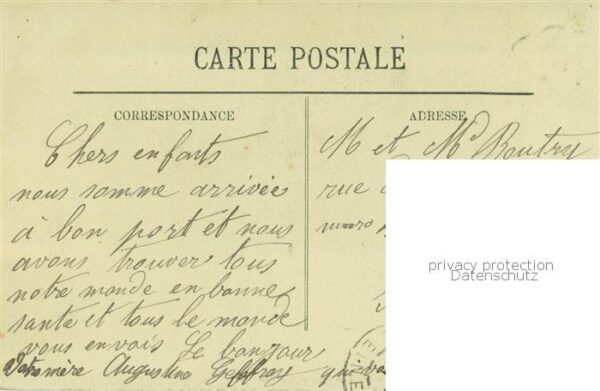 CARTE POSTALE
CORRESPONDANCE
ADRESSE
Chers enfants
nous somme arrivée
à bon port et nous
avons trouver tous
notre monde en bonne
santé et tous le monde
vous envois le bonjour
Votre mère Augustine Geffroy qui
M et Md Boutry
rue
numero
privacy protection
Datenschutz